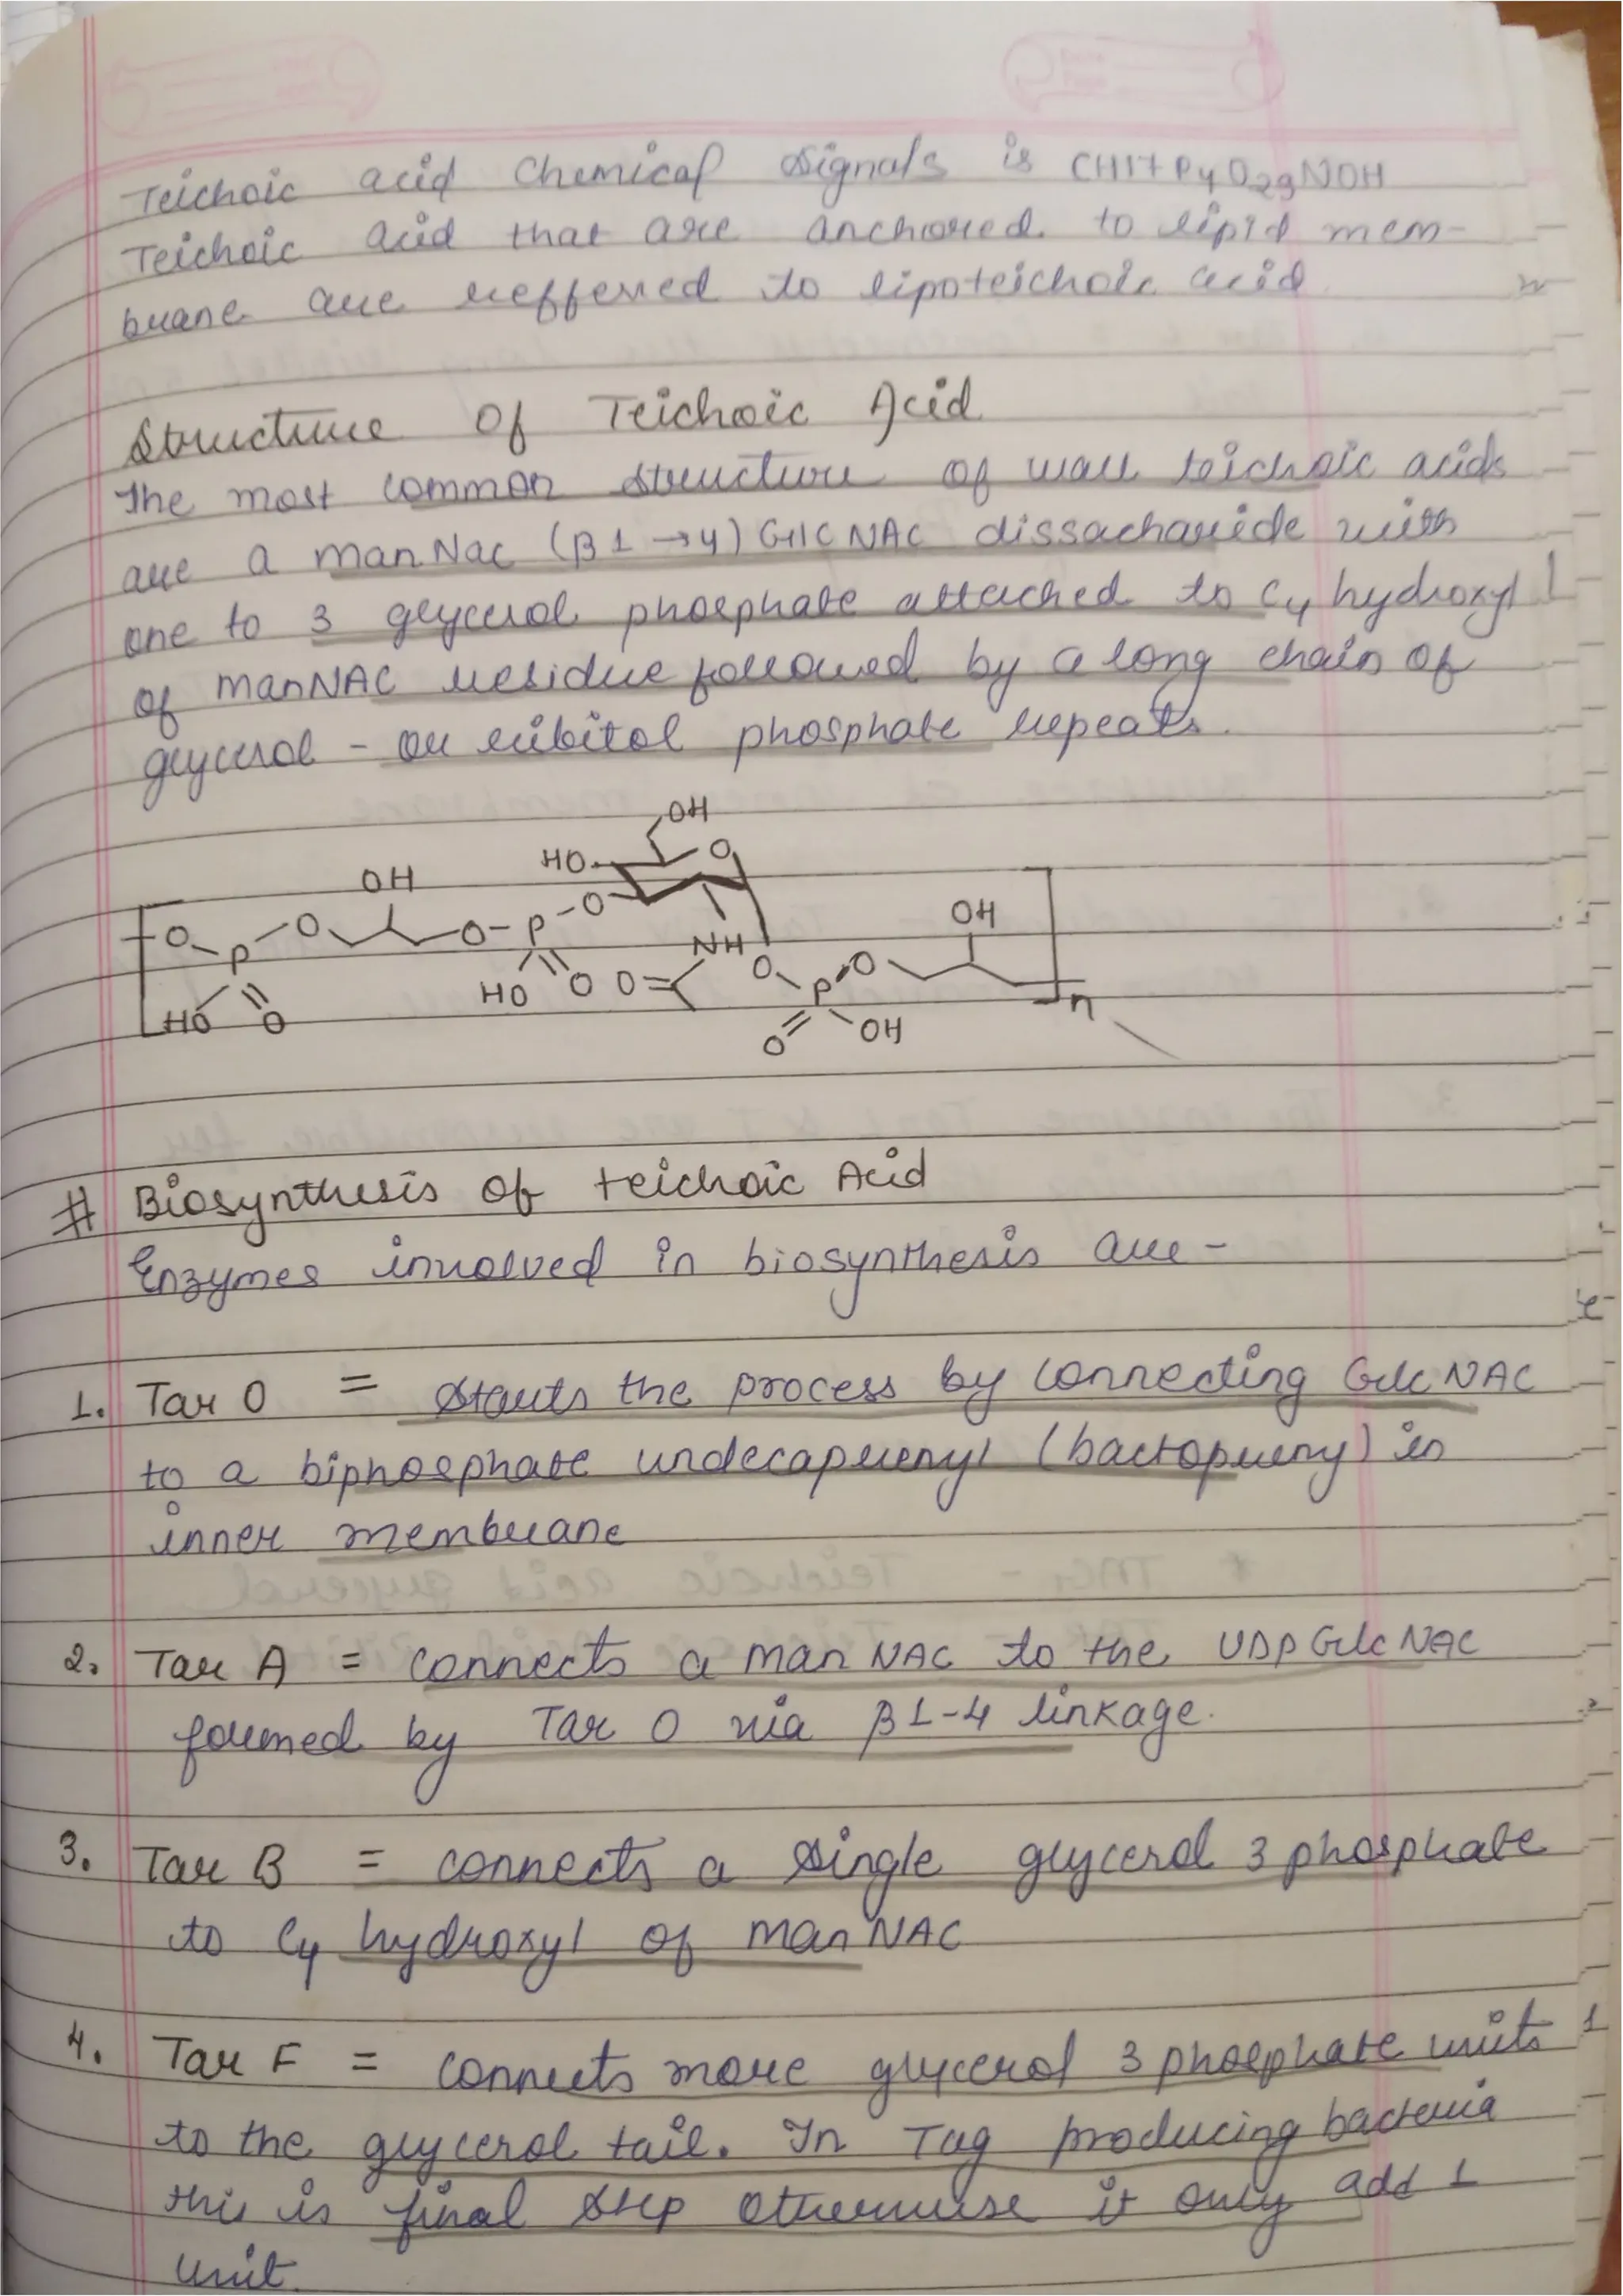 Teichoic acid Chemical signals is CH17P4O29NOH
Teichoic acid that are anchored to lipid mem-
brane are reffered to lipoteichoic acid
Structure Of Teichoic Acid
The most common structure of wall teichoic acids
are a manNac (β1→4) GlcNAC dissacharide with
one to 3 glycerol phosphate attached to C4 hydroxyl
of manNAC residue followed by a long chain of
glycerol - or ribitol phosphate repeats.
OH
HO O
OH
O P O O-P-O OH
NH
HO O HO O O O P O n
O OH
# Biosynthesis of teichoic Acid
Enzymes involved in biosynthesis are-
1. Tar O = starts the process by connecting GlcNAC
to a biphosphate undecaprenyl (bactopreny) in
inner membrane
2. Tar A = connects a man NAC to the UDP GlcNAC
formed by Tar O via β1-4 linkage.
3. Tar B = connects a single glycerol 3 phosphate
to C4 hydroxyl of manNAC
4. Tar F = connects more glycerol 3 phosphate units
to the glycerol tail. In Tag producing bacteria
this is final step otherwise it only add 1
unit.